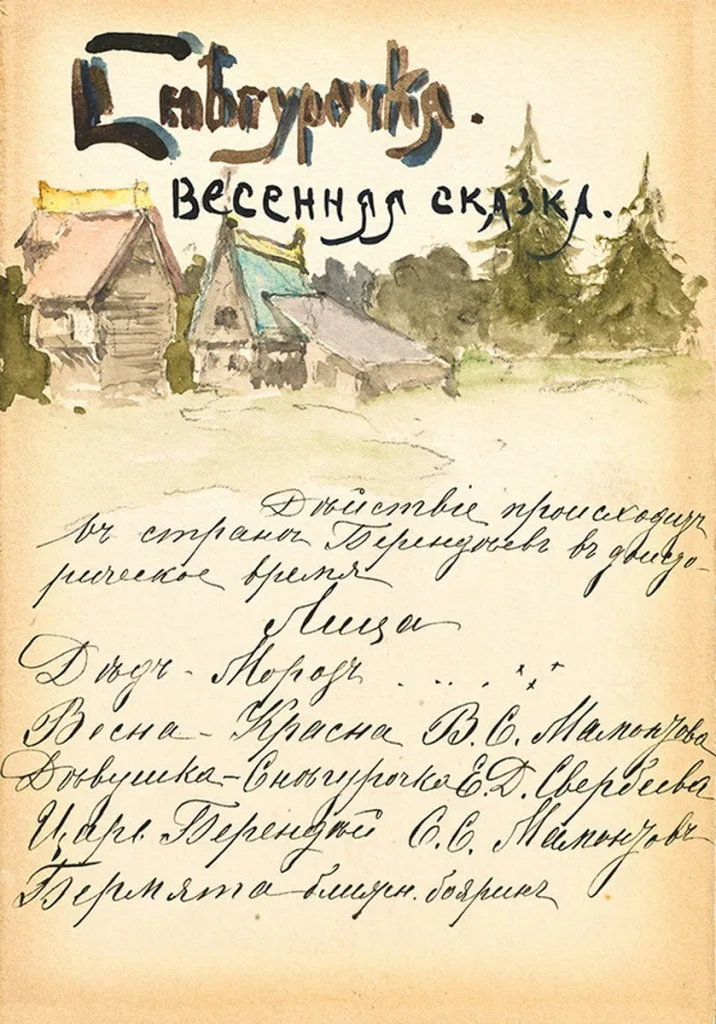 Снѣгурочка.
весенняя сказка.
Дѣйствіе происходитъ
въ странѣ Берендѣевъ въ доисто-
рическое время
Лица
Дѣдъ - Морозъ . . . . . ⁂
Весна - Красна В. С. Мамонтова
Дѣвушка - Снѣгурочка Е. Д. Свербеева
Царь Берендѣй С. С. Мамонтовъ
Бермята ближн. бояринъ